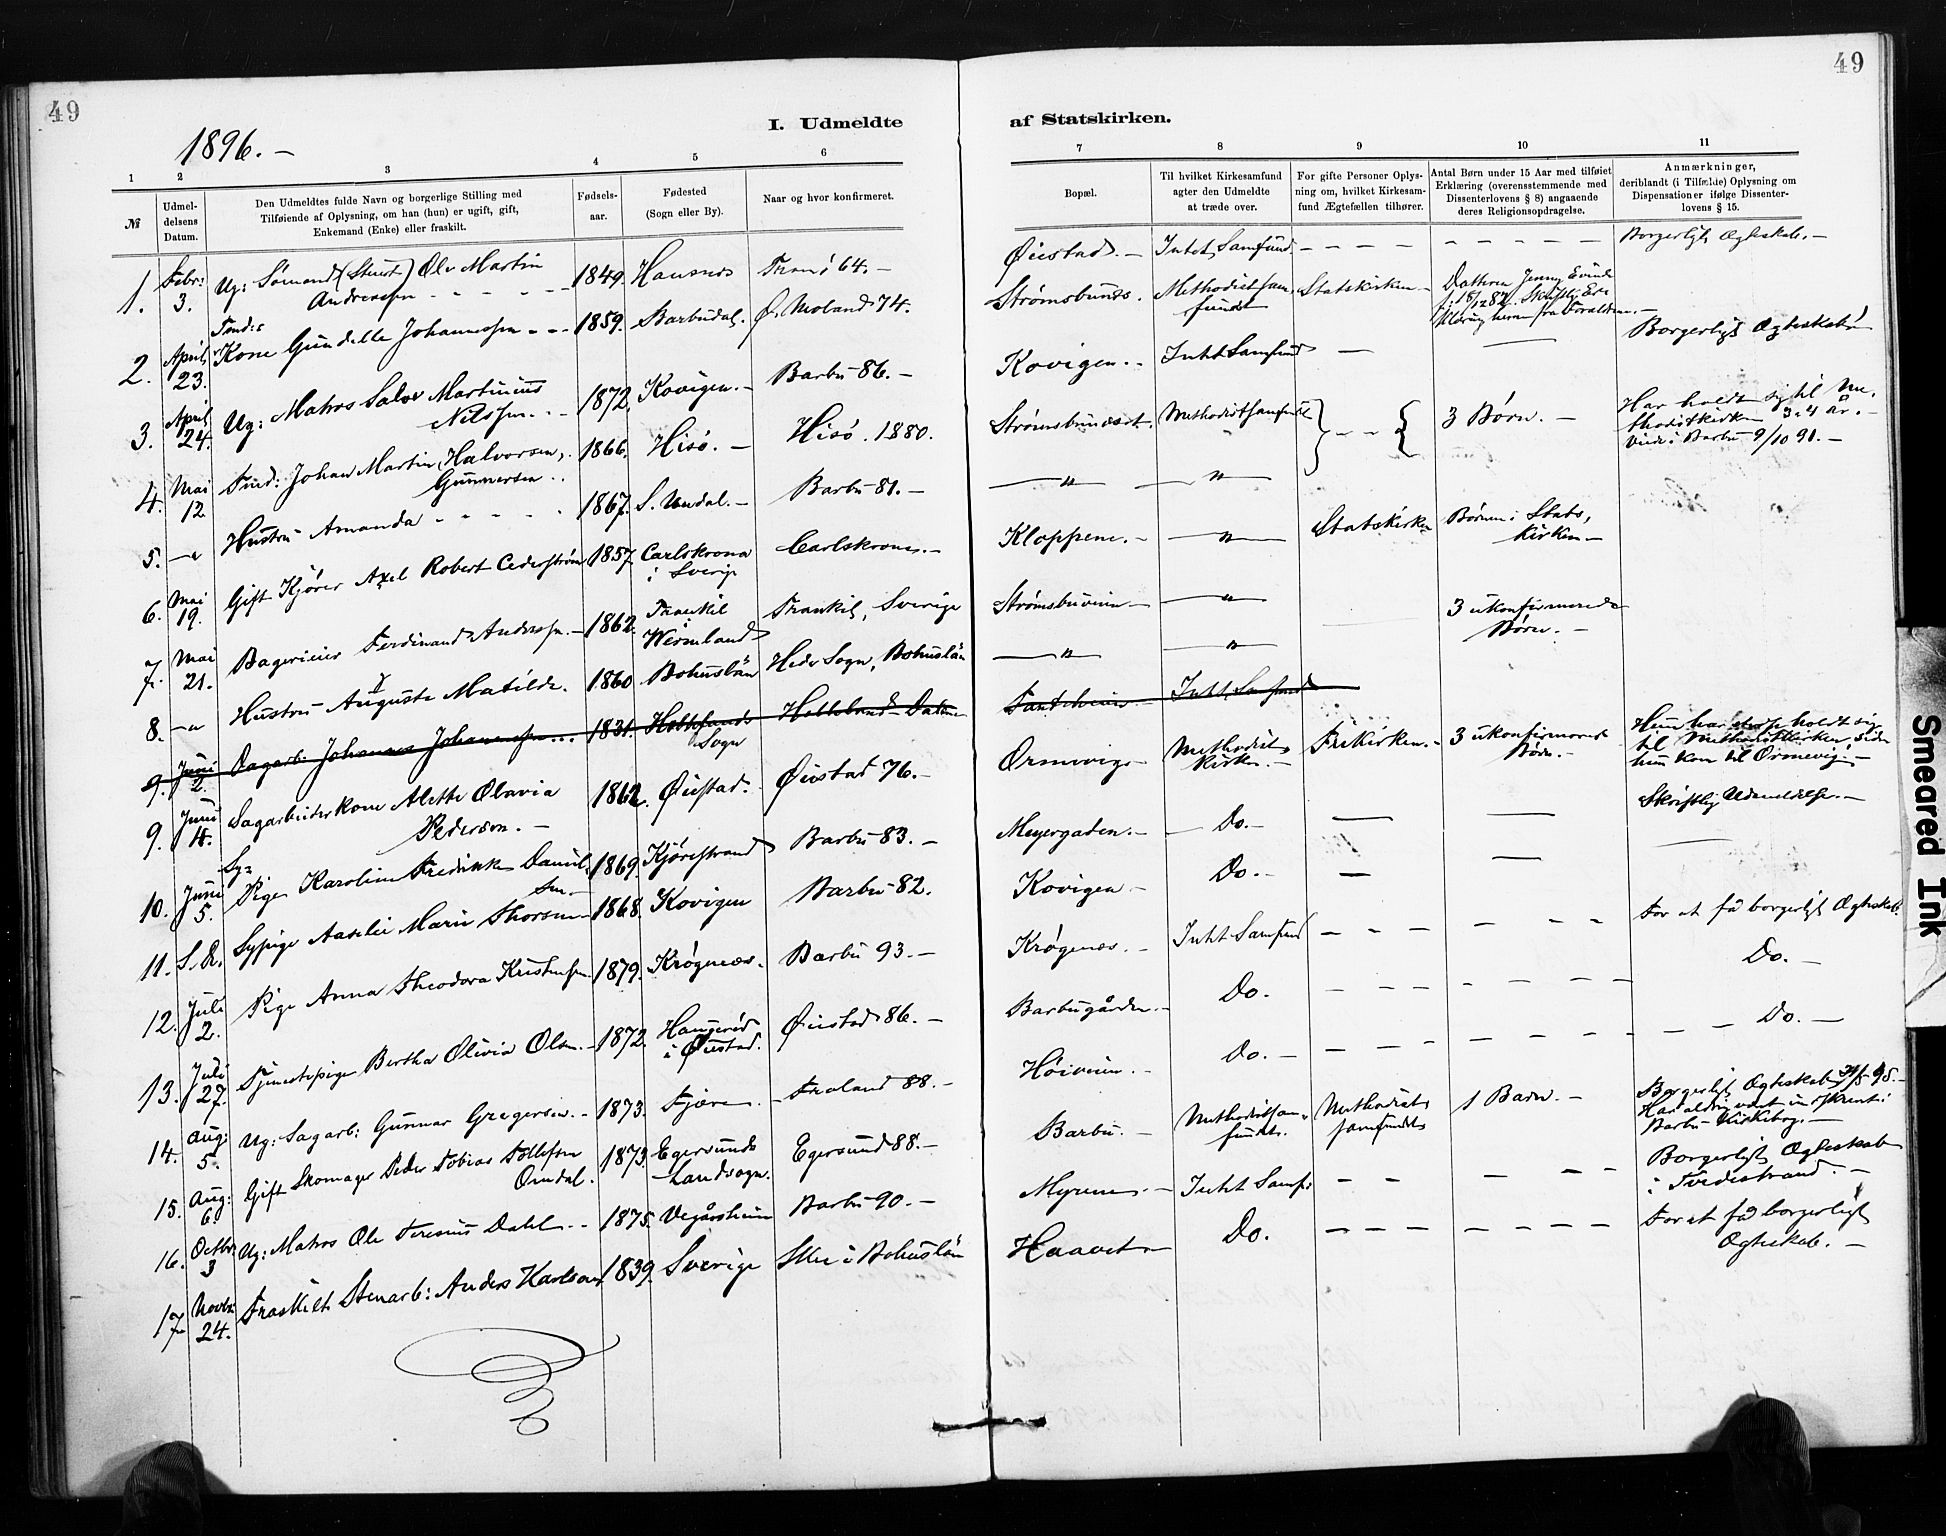 49
49
1896. –
I. Udmeldte
af Statskirken.
1 2 3 4 5 6
7 8 9 10 11
№
Udmel-
delsens
Datum.
Den Udmeldtes fulde Navn og borgerlige Stilling med
Tilføiende af Oplysning, om han (hun) er ugift, gift,
Enkemand (Enke) eller fraskilt.
Fødsels-
aar.
Fødested
(Sogn eller By).
Naar og hvor konfirmeret.
Bopæl.
Til hvilket Kirkesamfund
agter den Udmeldte
at træde over.
For gifte Personer Oplys-
ning om, hvilket Kirkesam-
fund Ægtefællen tilhører.
Antal Børn under 15 Aar med tilføiet
Erklæring (overensstemmende med
Dissenterlovens § 8) angaaende
deres Religionsopdragelse.
Anmærkninger,
deriblandt (i Tilfælde) Oplysning om
Dispensationer ifølge Dissenter-
lovens § 15.
1. Febr: 3. Ug: Sømand (Stuert) Olv Martin
Andreassen - - - 1849. Tromø 64. –
Øiestad. – Intet Samfund. – – – – – – – – – Borgerligt Ægteskab. –
2. April 23. Kone Gundelle Johannessen - - 1859. Barbudal. Ø. Moland 74.
Strømsbunes. Methodistsam-
fundet Statskirken – Datteren Jenny
3. April 24. Ug: Matros Salve Martinius
Nilssen. - - 1872. Kovigen. – Barbu 86. –
Kovigen. – Intet Samfund – — Borgerligt Ægteskab
4. Mai 12 Johan Martin Halvorsen,
Gunnersen - - 1866. Hisö. – Hisö. 1880.
Methodistsamfundet - - 3 Børn. – Har holdt sig til Me-
thodistkirken 3-4 År. –
Barbu 9/10 91. –
5. — Hustru Amanda - - - - 1867. S. Undal. – Barbu 81. –
— " — — " —
6. Mai 19. Gift Kjører Axel Robert Cederstrøm 1857 Carlskrona
i Sverige Carlskrona. –
Kloppene. – — " — Statskirken Børnene i Stats,
kirken –
7. Mai 21. Bageri Ferdinand Andersen. – 1862. Trankil
i
Wermland Trankil, Sverige
Strømsbuveien – — " — 3 ukonfirmerede
Børn. –
8. — Hustru Auguste Matilde. 1860 Bohuslän Hede Sogn, Bohuslän
— " — — " —
9. Juni 2. Dagarb. Johannes Johannessen ... 1831. Sogn
Intet Samfund
9. Juni 4. Sagarbeiderkone Alette Olavia
Pedersen. – 1862. Øiestad. Øiestad 76. –
Ormevig – Methodist-
kirken. – Frikirken. – 3 ukonfirmerede
Børn. – Hun har holdt sig
til Methodistkirken siden
hun kom til Ormevig. –
10. Juni 5. Sy-
Pige Karoline Fredrikke Daniel
sen – 1869. Kjørestrand Barbu 83. –
Meyergaden. – — Do. – — — Skriftlig Udmeldelse. –
11. S. D. Sypige Aaselie Marie Thorsen – 1868. Kovigen Barbu 82.
Kovigen – Do. – — — —
12. Juli 2. Pige Anna Theodora Kristensen 1879. Krøgenæs. Barbu 93. –
Krøgenæs. – Intet Samfund – – – – – – For at få borgerligt Ægteskab.
13. Juli 27. Tjenestepige Bertha Olivia Olsen. – 1872.
i Øiestad. Øiestad 86. –
Barbugården. – Do. – – – – – – – – Do. –
14. Aug: 5. Ug: Sagarb: Gunnar Gregersen. – 1873. Fjære – Froland 88. –
Høiveien. – Do. – – – – – – – – – – – Do. —
15. Aug: 6. Gift Skomager Peder Tobias Tollefsen
Omdal. 1873. Egersunds
Landsogn. Egersund 88. –
Barbu. – Methodistsam-
fundet. Methodist
samfundet 1 Barn. – Borgerligt Ægteskab 95. –
Har aldrig været
Barbu Kirkebog. –
16. Octbr 3 Ug: Matros Ole Teresius Dahl - - 1875. Vegårsheien Barbu 90. –
Myrene. – Intet Samf: – – – – – Borgerligt Ægteskab
i Tvedestrand. –
17. Novbr. 24. Fraskilt Stenarb: Anders Karlsen 1839. Sverige Skee i Bohuslän
Haavet – Do. – – – – – – – – For at få borgerligt
Ægteskab. –
Smeared Ink